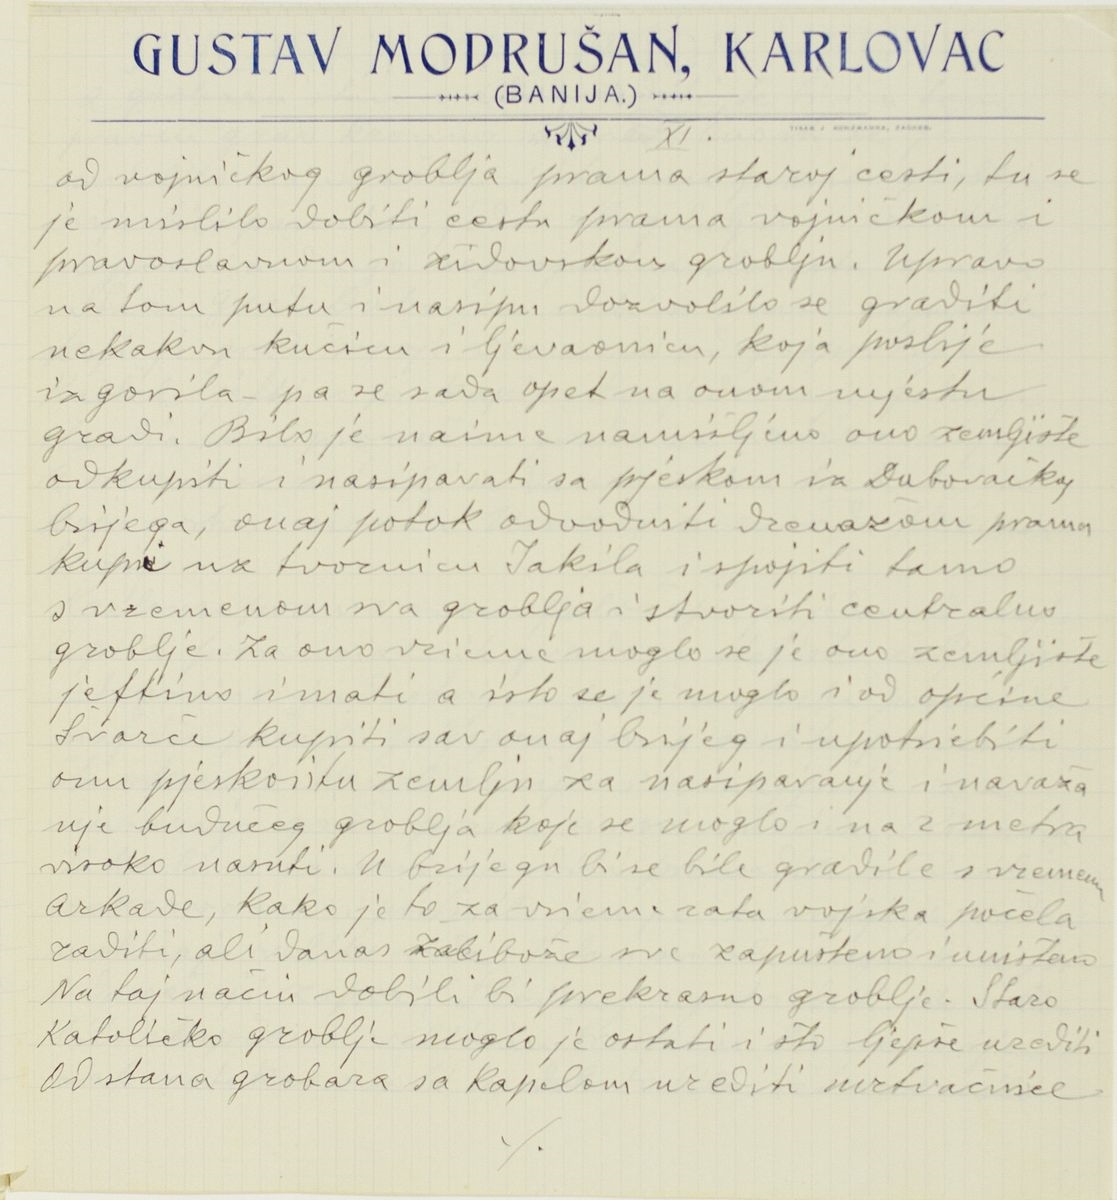 GUSTAV MODRUŠAN, KARLOVAC
(BANIJA.)
XI.
od vojničkog groblja prama staroj cesti, tu se
je mislilo dobiti cestu prama vojničkom i
pravoslavnom i židovskom groblju. Upravo
na tom putu i nasipu dozvolilo se graditi
nekakvu kućicu i ljevaonicu, koja poslije
izgorila - pa se sada opet na onom mjestu
gradi. Bilo je naime namišljeno ono zemljište
odkupiti i nasipavati sa pjeskom iz Dubovačkog
brijega, onaj potok odvodniti drenažom prama
kupi uz tvornicu Jakila i spojiti tamo
s vremenom sva groblja i stvoriti centralno
groblje. Za ono vrieme moglo se je ono zemljište
jeftino imati a isto se je moglo i od općine
Švarče kupiti sav onaj brijeg i upotriebiti
onu pjeskovitu zemlju za nasipavanje i navaža
nje budućeg groblja koje se moglo i na 2 metra
visoko nasuti. U brijegu bi se bile gradile s vremenom
arkade, kako je to za vrieme rata vojska počela
raditi, ali danas žalibože sve zapušteno i uništeno
Na taj način dobili bi prekrasno groblje. Staro
Katoličko groblje moglo je ostati i što ljepše urediti
Od stana grobara sa kapelom urediti mrtvačnice
./.